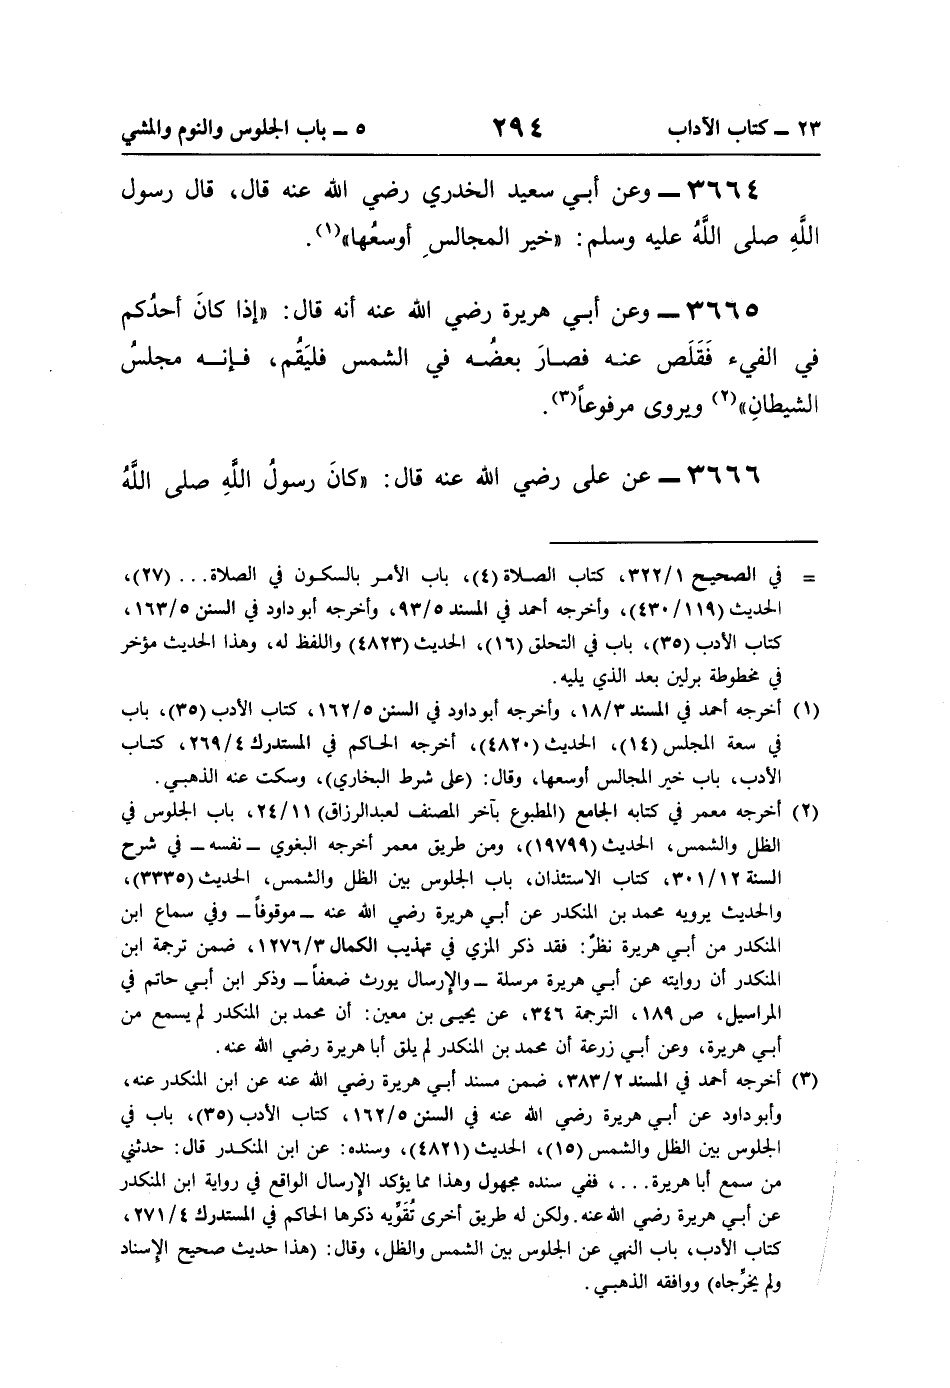 ٢٣ ــ كتاب الآداب ٢٩٤ ٥ ــ باب الجلوس والنوم والمشي
٣٦٦٤ ــ وعن أبي سعيد الخدري رضي الله عنه قال، قال رسول
اللَّهِ صلى اللَّهُ عليه وسلم: «خير المجالسِ أوسعُها»(١).
٣٦٦٥ ــ وعن أبي هريرة رضي الله عنه أنه قال: «إذا كانَ أحدُكم
في الفيء فَقَلَص عنه فصارَ بعضُه في الشمس فليَقُم، فإنه مجلسُ
الشيطانِ»(٢) ويروى مرفوعاً(٣).
٣٦٦٦ ــ عن على رضي الله عنه قال: «كانَ رسولُ اللَّهِ صلى اللَّهُ
= في الصحيح ٣٢٢/١، كتاب الصلاة (٤)، باب الأمر بالسكون في الصلاة... (٢٧)،
الحديث (٤٣٠/١١٩)، وأخرجه أحمد في المسند ٩٣/٥، وأخرجه أبو داود في السنن ١٦٣/٥،
كتاب الأدب (٣٥)، باب في التحلق (١٦)، الحديث (٤٨٢٣) واللفظ له، وهذا الحديث مؤخر
في مخطوطة برلين بعد الذي يليه.
(١) أخرجه أحمد في المسند ١٨/٣، وأخرجه أبو داود في السنن ١٦٢/٥، كتاب الأدب (٣٥)، باب
في سعة المجلس (١٤)، الحديث (٤٨٢٠)، أخرجه الحاكم في المستدرك ٢٦٩/٤، كتاب
الأدب، باب خير المجالس أوسعها، وقال: (على شرط البخاري)، وسكت عنه الذهبي.
(٢) أخرجه معمر في كتابه الجامع (المطبوع بآخر المصنف لعبدالرزاق) ٢٤/١١، باب الجلوس في
الظل والشمس، الحديث (١٩٧٩٩)، ومن طريق معمر أخرجه البغوي ــ نفسه ــ في شرح
السنة ٣٠١/١٢، كتاب الاستئذان، باب الجلوس بين الظل والشمس، الحديث (٣٣٣٥)،
والحديث يرويه محمد بن المنكدر عن أبي هريرة رضي الله عنه ــ موقوفاً ــ وفي سماع ابن
المنكدر من أبي هريرة نظرٌ: فقد ذكر المزي في تهذيب الكمال ١٢٧٦/٣، ضمن ترجمة ابن
المنكدر أن روايته عن أبي هريرة مرسلة ــ والإرسال يورث ضعفاً ــ وذكر ابن أبي حاتم في
المراسيل، ص ١٨٩، الترجمة ٣٤٦، عن يحيى بن معين: أن محمد بن المنكدر لم يسمع من
أبي هريرة، وعن أبي زرعة أن محمد بن المنكدر لم يلق أبا هريرة رضي الله عنه.
(٣) أخرجه أحمد في المسند ٣٨٣/٢، ضمن مسند أبي هريرة رضي الله عنه عن ابن المنكدر عنه،
وأبو داود عن أبي هريرة رضي الله عنه في السنن ١٦٢/٥، كتاب الأدب (٣٥)، باب في
الجلوس بين الظل والشمس (١٥)، الحديث (٤٨٢١)، وسنده: عن ابن المنكدر قال: حدثني
من سمع أبا هريرة...، ففي سنده مجهول وهذا مما يؤكد الإرسال الواقع في رواية ابن المنكدر
عن أبي هريرة رضي الله عنه. ولكن له طريق أخرى تُقَوِّيه ذكرها الحاكم في المستدرك ٢٧١/٤،
كتاب الأدب، باب النهي عن الجلوس بين الشمس والظل، وقال: (هذا حديث صحيح الإسناد
ولم يخرِّجاه) ووافقه الذهبي.